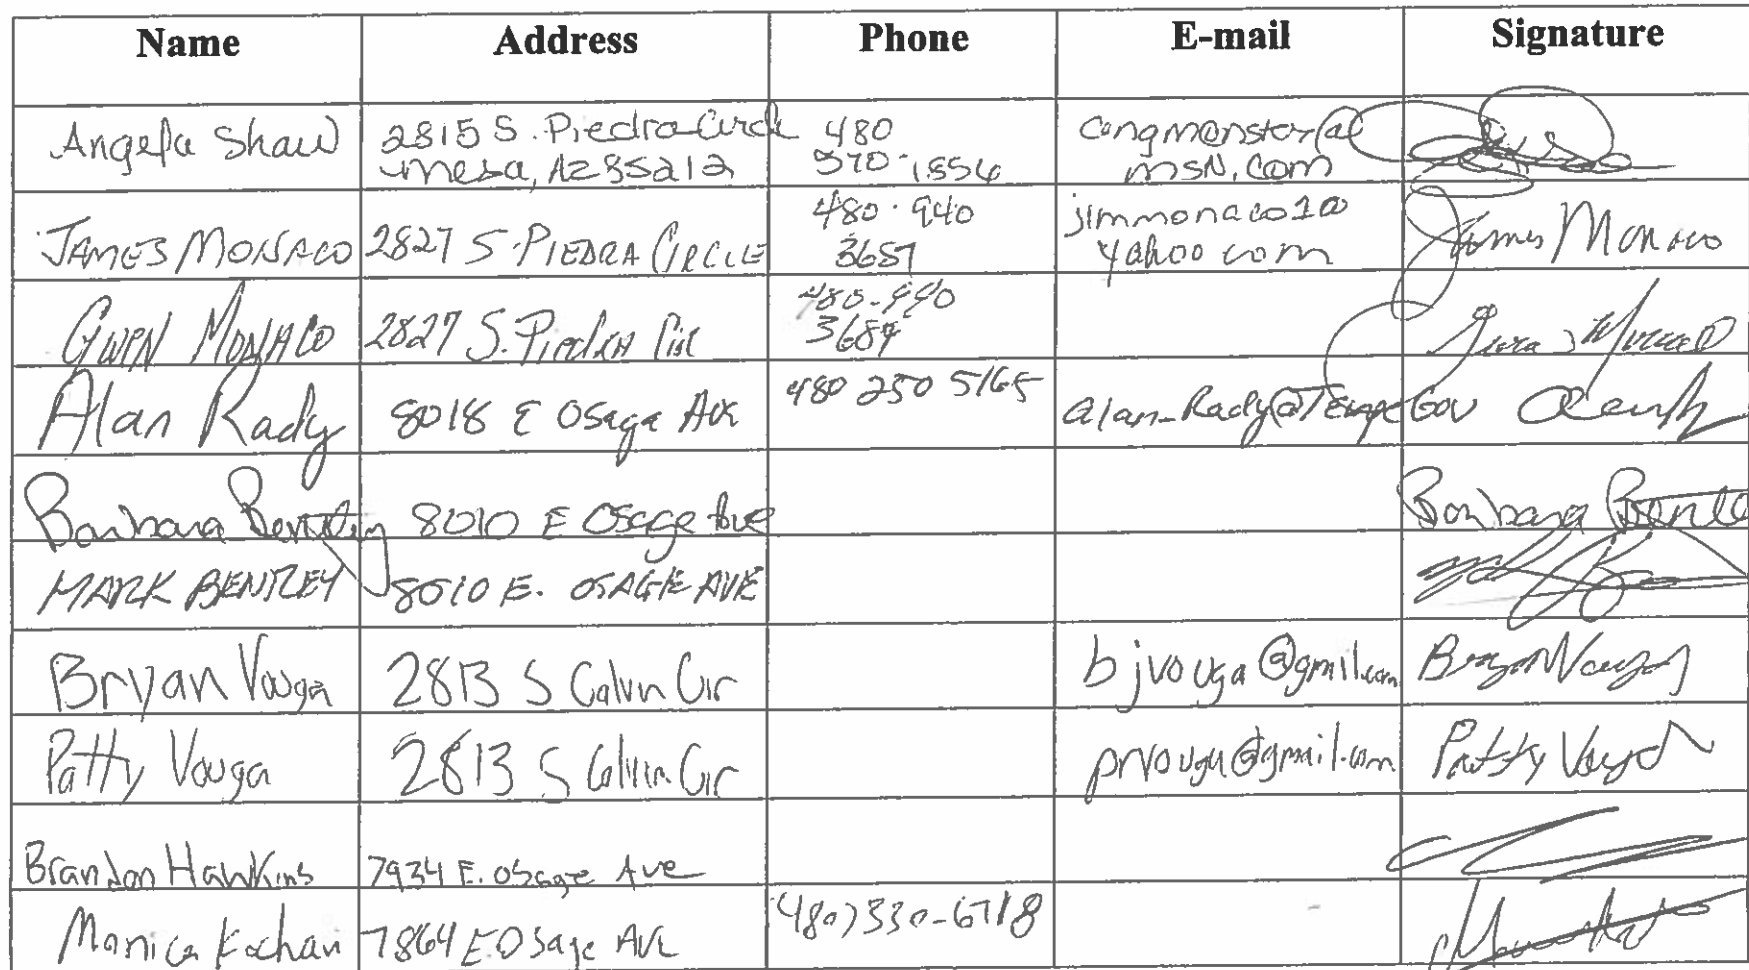 Name Address Phone E-mail Signature
Angela Shaw 2815 S. Piedra Circle 480
Mesa, AZ 85212 570-1556 msn.com
JAMES MONACO 2827 S. PIEDRA CIRCLE 480-940 jimmonaco1@ James Monaco
3657 yahoo com
GWEN MONACO 2827 S. Piedra Cir 480-940
Alan Rady 8018 E Osage Ave 480 250 5165 alan_Rady@Tempe Gov
Barbara Bentley 8010 E Osage Ave Barbara Bentle
MARK BENTLEY 8010 E. OSAGE AVE
Bryan Vouga 2813 S Calvin Cir bjvouga@gmail.com Bryan Vouga
Patty Vouga 2813 S Calvin Cir prvouga@gmail.com Patty Vouga
Brandon Hawkins 7934 E. Osage Ave
Monica Kochan 7864 E. Osage Ave (480) 330-6718